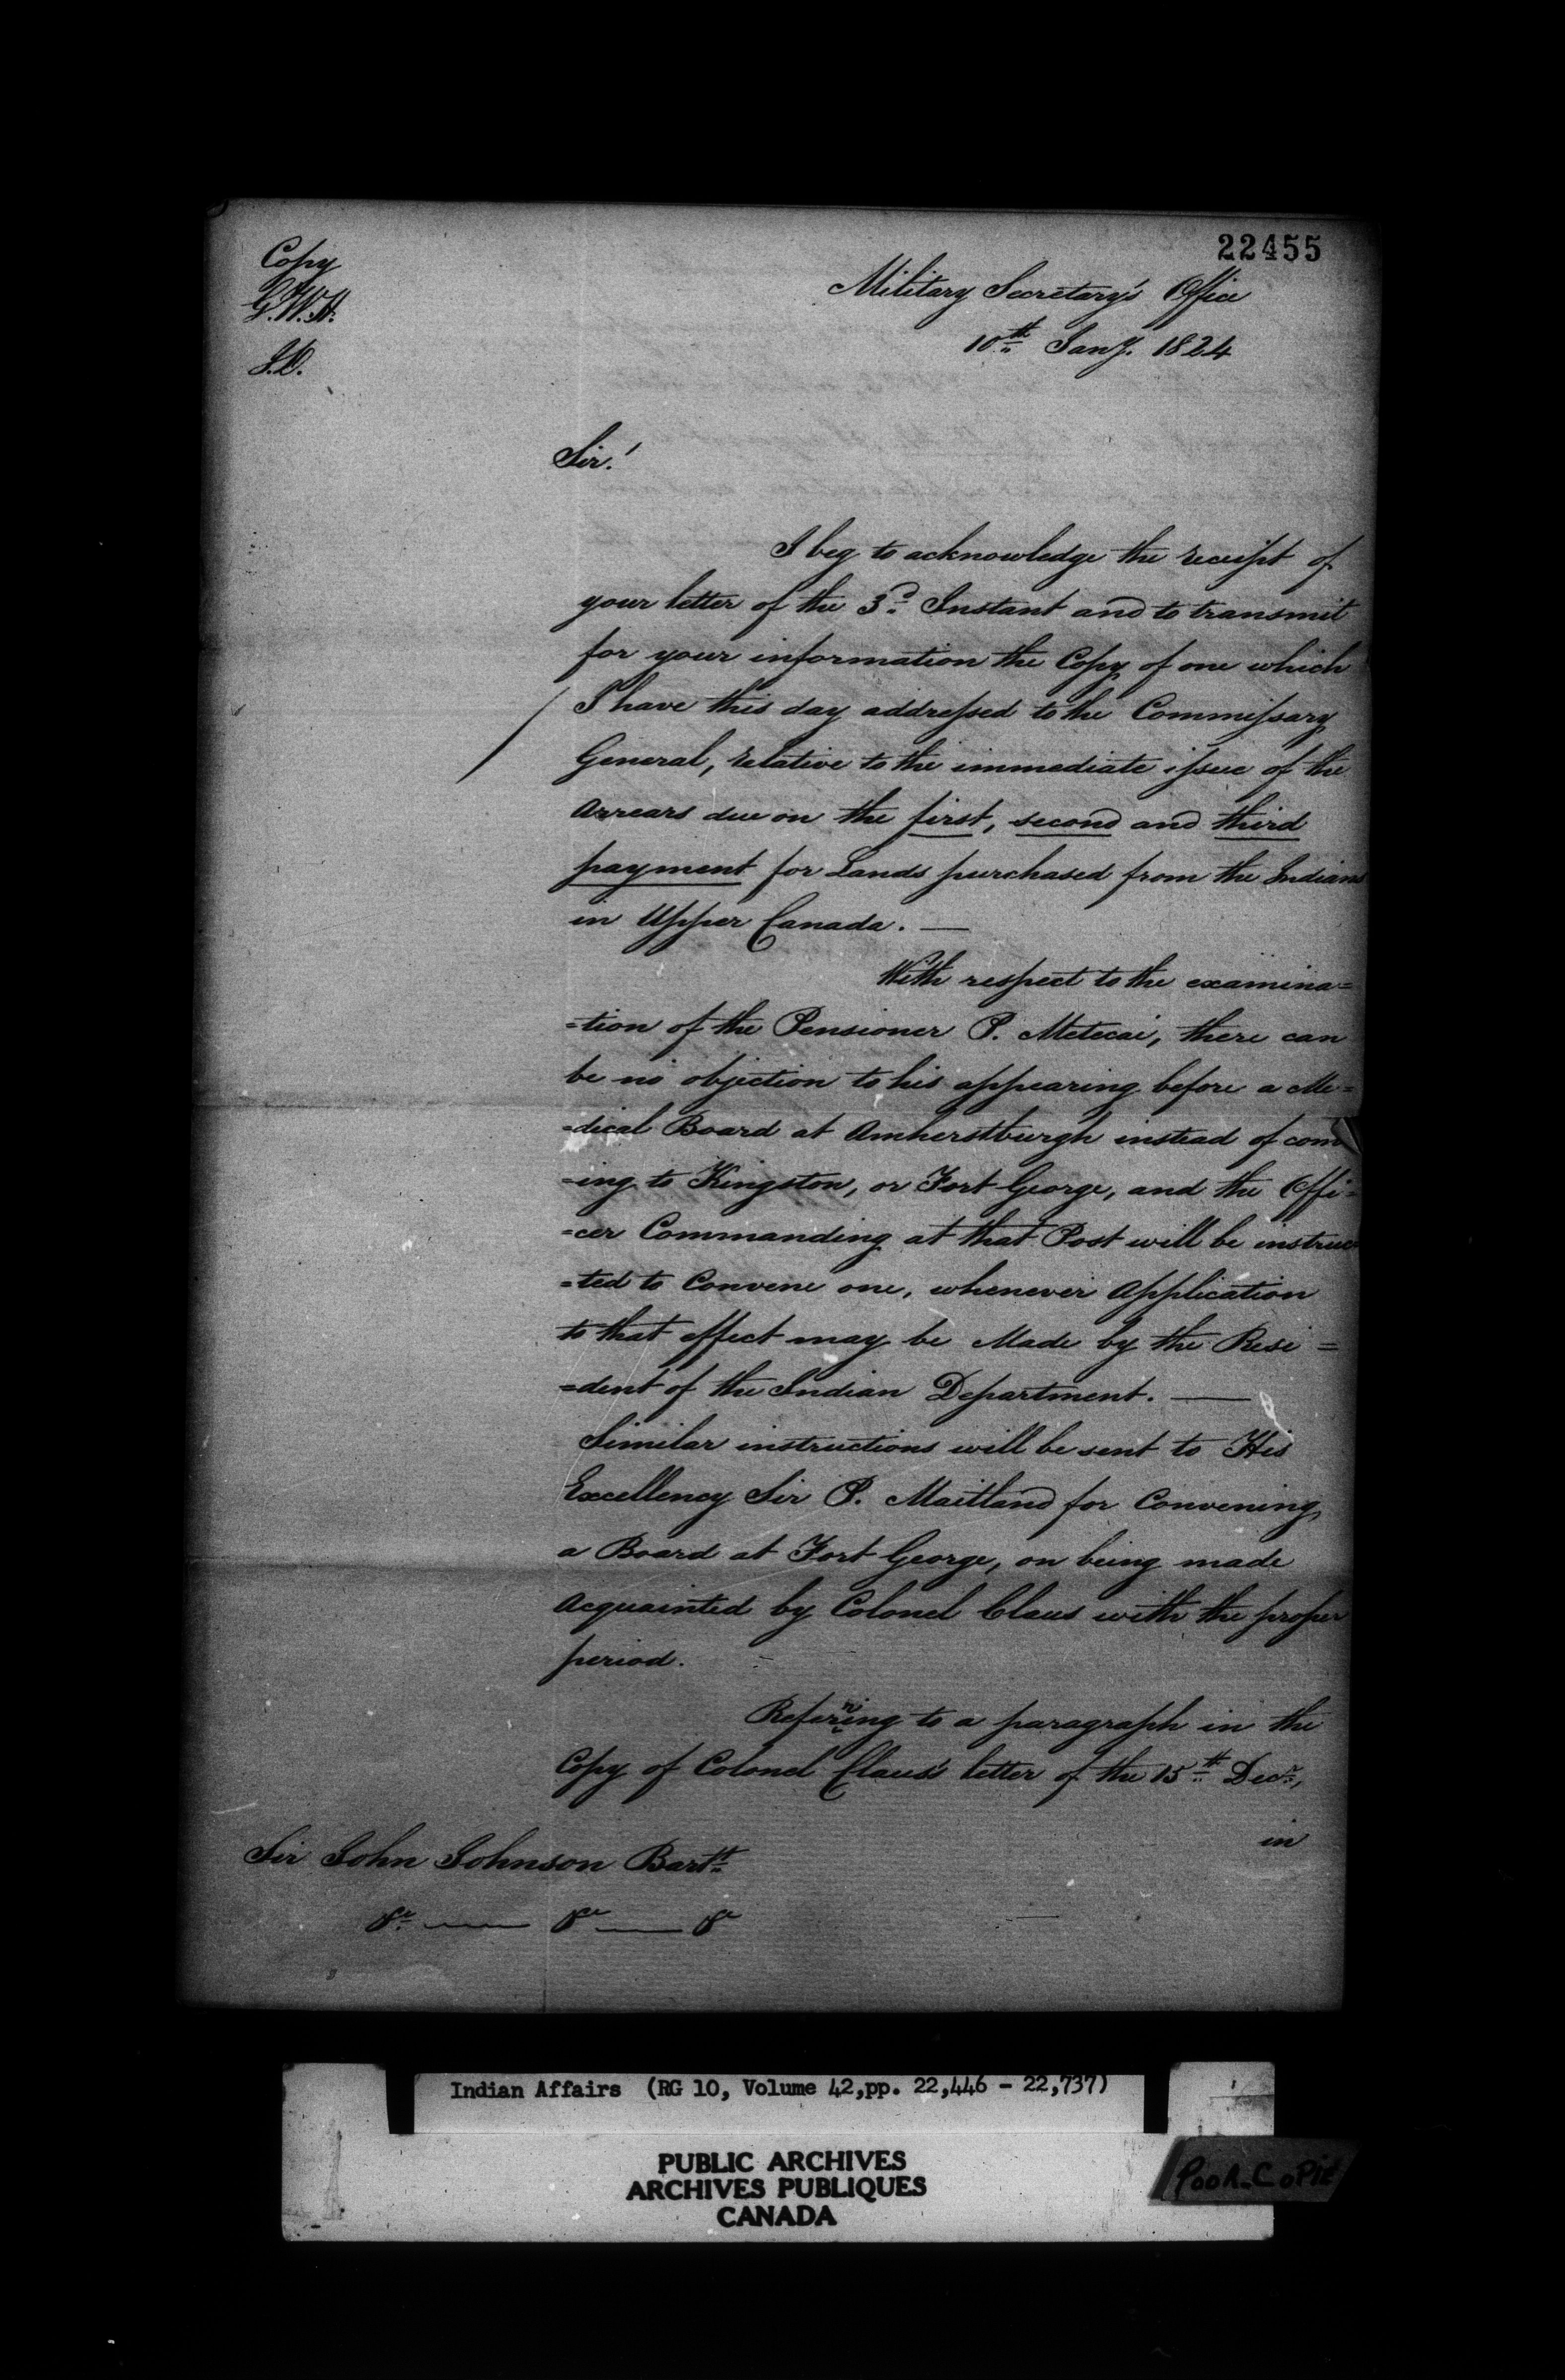 22455
Copy
G.W.H.
J.D.
Military Secretary's Office
10th Jany. 1824
Sir!
I beg to acknowledge the receipt of
your letter of the 3d. Instant and to transmit
for your information the Copy of one which
I have this day addressed to the Commissary
General, relative to the immediate issue of the
Arrears due on the first, second and third
payment for Lands purchased from the Indians
in Upper Canada. —
With respect to the examina=
=tion of the Pensioner P. Metecai, there can
be no objection to his appearing before a Me=
=dical Board at Amherstburgh instead of com
=ing to Kingston, or Fort George, and the Offi=
=cer Commanding at that Post will be instruc
=ted to Convene one, whenever Application
to that effect may be Made by the Resi=
=dent of the Indian Department. —
Similar instructions will be sent to His
Excellency Sir P. Maitland for Convening
a Board at Fort George, on being made
Acquainted by Colonel Claus with the proper
period.
Referring to a paragraph in the
Copy of Colonel Claus's letter of the 15th Decr.,
in
Sir John Johnson Bartt.
&c — &c — &c
Indian Affairs (RG 10, Volume 42,pp. 22,446 - 22,737)
PUBLIC ARCHIVES
ARCHIVES PUBLIQUES
CANADA
Poor Copie